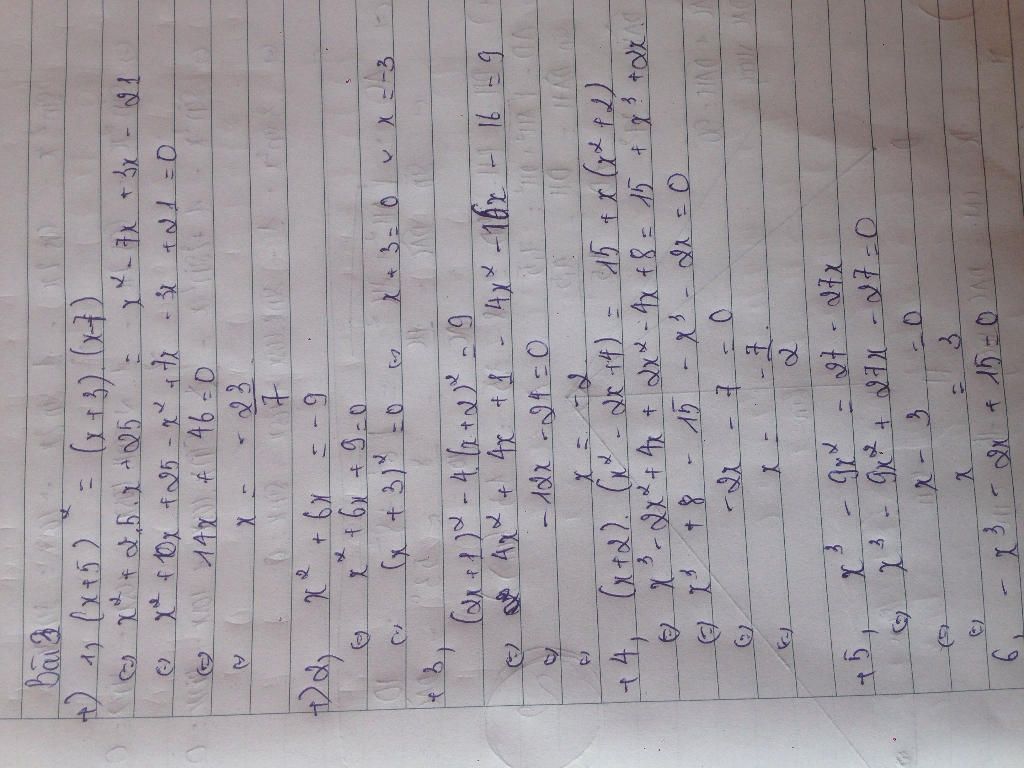 Bài 3
+) 1, (x+5)² = (x+3).(x-7)
(=) x² + 2.5x + 25 = x² - 7x + 3x - 21
(=) x² + 10x + 25 - x² + 7x - 3x + 21 = 0
(=) 14x + 46 = 0
x = -23/7
+) 2, x² + 6x = -9
(=) x² + 6x + 9 = 0
(=) (x + 3)² = 0 (=) x + 3 = 0 x = -3
+ 3, (2x + 1)² - 4(x + 2)² = 9
(=) 4x² + 4x + 1 - 4x² - 16x - 16 = 9
(=) -12x - 24 = 0
(=) x = -2
+ 4, (x+2).(x² - 2x + 4) = 15 + x(x² + 2)
(=) x³ - 2x² + 4x + 2x² - 4x + 8 = 15 + x³ + 2x
(=) x³ + 8 - 15 - x³ - 2x = 0
(=) -2x - 7 = 0
(=) x = -7/2
+ 5, x³ - 9x² = 27 - 27x
(=) x³ - 9x² + 27x - 27 = 0
(=) x - 3 = 0
(=) x = 3
6, - x³ - 2x + 15 = 0